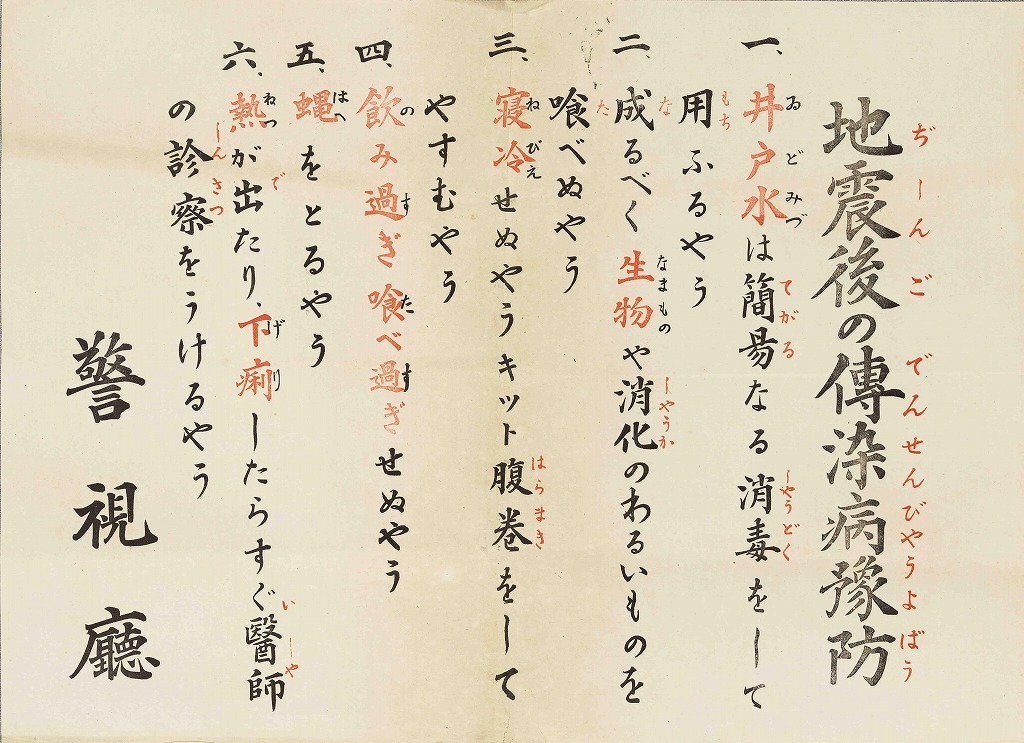 地震後の傳染病豫防
一、井戸水は簡昜なる消毒をして
用ふるやう
二、成るべく生物や消化のわるいものを
喰べぬやう
三、寝冷せぬやうキット腹巻をして
やすむやう
四、飲み過ぎ喰べ過ぎせぬやう
五、蝿をとるやう
六、熱が出たり、下痢したらすぐ醫師
の診察をうけるやう
警視廳